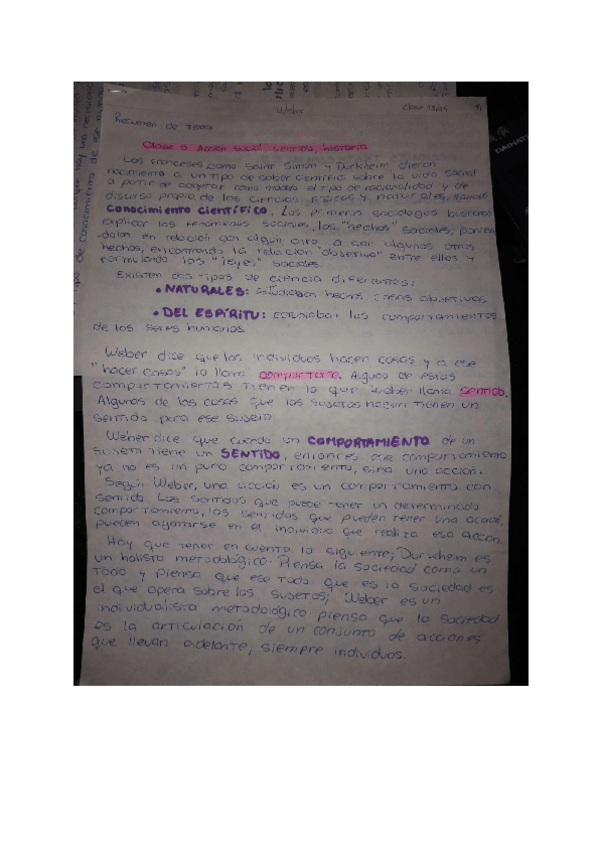 Weber
Clase 13/04
Resumen de Texto
Clase 5 Acción social, sentido, historia
Los franceses como Saint Simon y Durkheim dieron
nacimiento a un tipo de saber científico sobre la vida social
a partir de adoptar como modelo el tipo de racionalidad y de
discurso propio de las ciencias físicas y naturales, llamado
Conocimiento científico. Los primeros sociólogos buscaron
explicar los fenómenos sociales, los "hechos" sociales, ponien
dolos en relación con algún otro, o con algunos otros
hechos, encontrando la relación "objetiva" entre ellos y
formulando las "leyes" sociales.
Existen dos tipos de ciencia diferentes:
• NATURALES: Estudiaban hechos, cosas objetivas
• DEL ESPÍRITU: Estudiaban los comportamientos
de los seres humanos
Weber dice que los individuos hacen cosas y a ese
"hacer cosas" lo llama comportarse. Algunos de estos
comportamientos tienen lo que Weber llama sentido.
Algunas de las cosas que los sujetos hacen tienen un
sentido para ese sujeto
Weber dice que cuando un COMPORTAMIENTO de un
sujeto tiene un SENTIDO, entonces ese comportamiento
ya no es un puro comportamiento, sino una acción.
Según Weber, una acción es un comportamiento con
sentido. Los sentidos que puede tener un determinado
comportamiento, los sentidos que pueden tener una acción,
pueden agotarse en el individuo que realiza esa acción.
Hay que tener en cuenta lo siguiente; Durkheim es
un holista metodológico. Piensa la sociedad como un
todo y piensa que ese todo que es la sociedad es
el que opera sobre los sujetos; Weber es un
individualista metodológico piensa que la sociedad
es la articulación de un conjunto de acciones
que llevan adelante, siempre individuos.